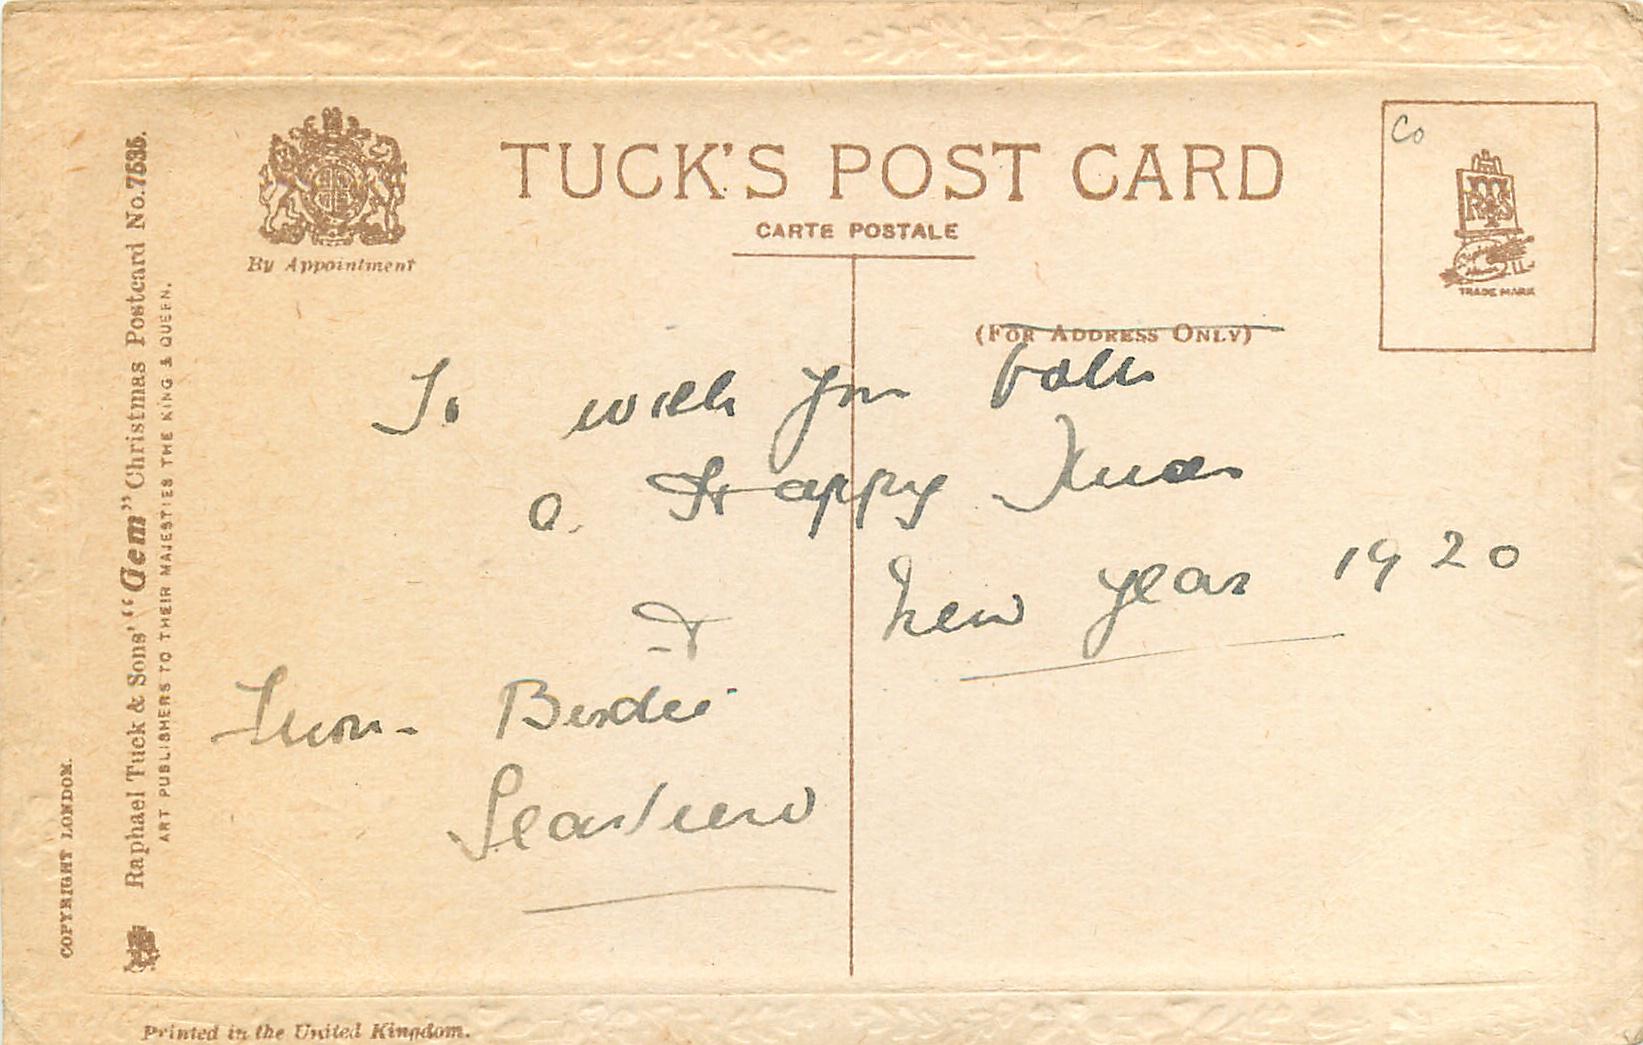 TUCK'S POST CARD
CARTE POSTALE
By Appointment
(FOR ADDRESS ONLY)
Co
TRADE MARK
To wish you both
a Happy Xmas
& New Year 1920
From Birdie
Seaview
COPYRIGHT LONDON.
Raphael Tuck & Sons' "Gem" Christmas Postcard No. 7535.
ART PUBLISHERS TO THEIR MAJESTIES THE KING & QUEEN.
Printed in the United Kingdom.